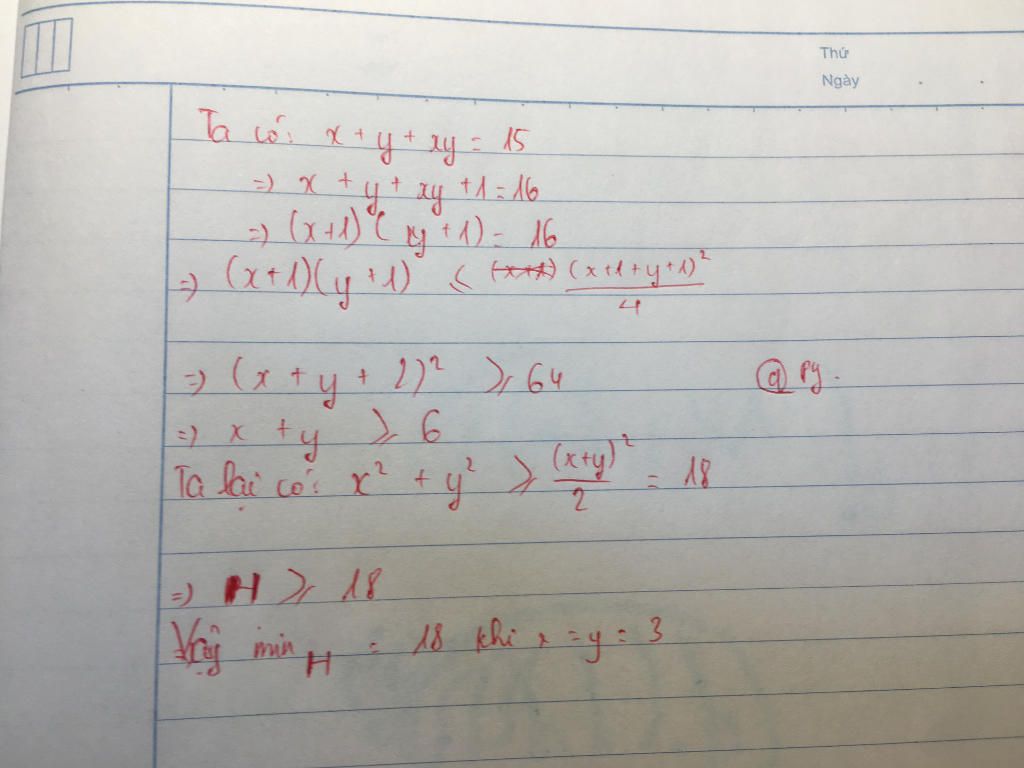 Thứ
Ngày
Ta có: x + y + xy = 15
=> x + y + xy + 1 = 16
=> (x+1)(y+1) = 16
=> (x+1)(y+1) ≤ (x+1+y+1)² / 4
=> (x + y + 2)² ≥ 64
@ Py.
=> x + y ≥ 6
Ta lại có: x² + y² ≥ (x+y)² / 2 = 18
=> H ≥ 18
Vậy min H = 18 khi x = y = 3